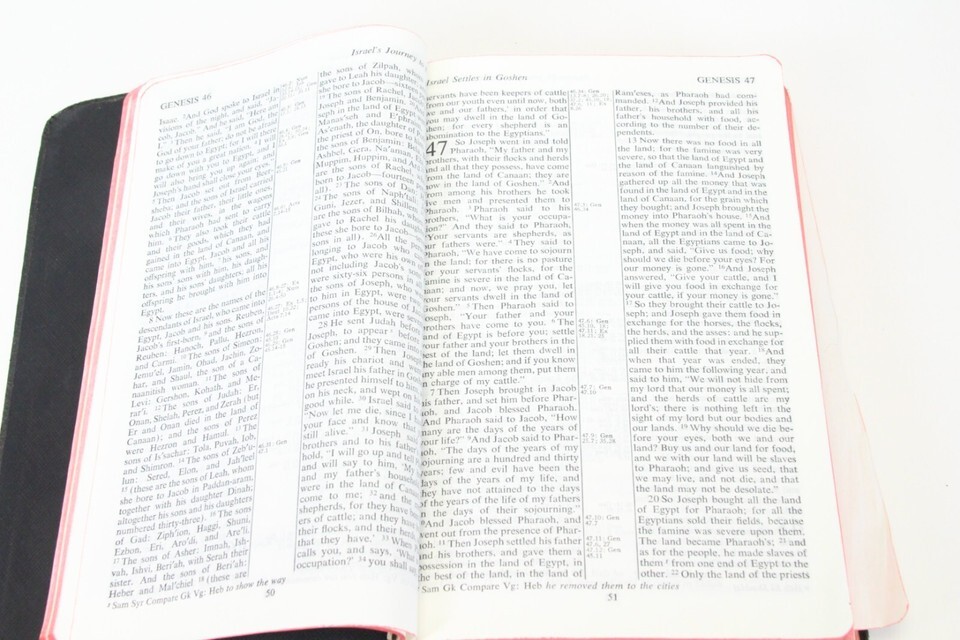 GENESIS 46
Israel's Journey
Isaac. ²And God spoke to Israel in
visions of the night, and said, "Jacob,
Jacob." And he said, "Here am
I." ³Then he said, "I am God, the
God of your father; do not be afraid
to go down to Egypt; for I will there
make of you a great nation. ⁴I will
go down with you to Egypt, and I
will also bring you up again; and
Joseph's hand shall close your eyes."
⁵Then Jacob set out from Beer-
sheba; and the sons of Israel carried
Jacob their father, their little ones,
and their wives, in the wagons
which Pharaoh had sent to carry
him. ⁶They also took their cattle
and their goods, which they had
gained in the land of Canaan, and
came into Egypt, Jacob and all his
offspring with him, ⁷his sons, and
his sons' sons with him, his daugh-
ters, and his sons' daughters; all his
offspring he brought with him into
Egypt.
8 Now these are the names of the
descendants of Israel, who came into
Egypt, Jacob and his sons. Reuben,
Jacob's first-born, ⁹and the sons of
Reuben: Hanoch, Pallu, Hezron,
and Carmi. ¹⁰The sons of Simeon:
Jemu'el, Jamin, Ohad, Jachin, Zo-
har, and Shaul, the son of a Ca-
naanitish woman. ¹¹The sons of
Levi: Gershon, Kohath, and Me-
rar'i. ¹²The sons of Judah: Er,
Onan, Shelah, Perez, and Zerah (but
Er and Onan died in the land of
Canaan); and the sons of Perez
were Hezron and Hamul. ¹³The
sons of Is'sachar: Tola, Puvah, Iob,
and Shimron. ¹⁴The sons of Zeb'u-
lun: Sered, Elon, and Jah'leel
¹⁵(these are the sons of Leah, whom
she bore to Jacob in Paddan-aram,
together with his daughter Dinah;
altogether his sons and his daughters
numbered thirty-three). ¹⁶The sons
of Gad: Ziph'ion, Haggi, Shuni,
Ezbon, Eri, Aro'di, and Are'li.
¹⁷The sons of Asher: Imnah, Ish-
vah, Ishvi, Beri'ah, with Serah their
sister. And the sons of Beri'ah:
Heber and Mal'chiel ¹⁸(these are
the sons of Zilpah,
gave to Leah his daughter
she bore to Jacob—sixteen
¹⁹The sons of Rachel,
Joseph and Benjamin.
seph in the land of Egypt
Manas'seh and E'phraim,
As'enath, the daughter of
the priest of On, bore to
the sons of Benjamin: B
Ashbel, Gera, Na'aman,
Muppim, Huppim, and A
are the sons of Rachel,
born to Jacob—fourteen
all). ²³The sons of Dan
²⁴The sons of Naph'tali
Guni, Jezer, and Shillem
are the sons of Bilhah,
gave to Rachel his daug
these she bore to Jacob—
sons in all). ²⁶All the per
longing to Jacob who
Egypt, who were his own
not including Jacob's sons'
were sixty-six persons in
the sons of Joseph, who
to him in Egypt, were two
persons of the house of Ja
came into Egypt, were sev
28 He sent Judah before
Joseph, to appear ᵍ before
of Goshen; and they came
²⁹Then Joseph
ready his chariot and went
meet Israel his father in Gosh
he presented himself to him
on his neck, and wept on
good while. ³⁰Israel said
"Now let me die, since I
your face and know that
still alive." ³¹Joseph said
brothers and to his father's
hold, "I will go up and tell
and will say to him, 'My
and my father's household
were in the land of Canaan
come to me; ³²and the
shepherds, for they have
ers of cattle; and they have
their flocks, and their herds
that they have.' ³³When
calls you, and says, 'What
occupation?' ³⁴you shall say
ᵍ Sam Syr Compare Gk Vg: Heb to show the way
50
Israel Settles in Goshen
GENESIS 47
servants have been keepers of cattle
from our youth even until now, both
we and our fathers,' in order that
you may dwell in the land of Go-
shen; for every shepherd is an
abomination to the Egyptians."
47 So Joseph went in and told
Pharaoh, "My father and my
brothers, with their flocks and herds
and all that they possess, have come
from the land of Canaan; they are
now in the land of Goshen." ²And
from among his brothers he took
five men and presented them to
Pharaoh. ³Pharaoh said to his
brothers, "What is your occupa-
tion?" And they said to Pharaoh,
"Your servants are shepherds, as
our fathers were." ⁴They said to
Pharaoh, "We have come to sojourn
in the land; for there is no pasture
for your servants' flocks, for the
famine is severe in the land of Ca-
naan; and now, we pray you, let
your servants dwell in the land of
Goshen." ⁵Then Pharaoh said to
Joseph, "Your father and your
brothers have come to you. ⁶The
land of Egypt is before you; settle
your father and your brothers in the
best of the land; let them dwell in
the land of Goshen; and if you know
any able men among them, put them
in charge of my cattle."
7 Then Joseph brought in Jacob
his father, and set him before Phar-
aoh, and Jacob blessed Pharaoh.
⁸And Pharaoh said to Jacob, "How
many are the days of the years of
your life?" ⁹And Jacob said to Phar-
aoh, "The days of the years of my
sojourning are a hundred and thirty
years; few and evil have been the
days of the years of my life, and
they have not attained to the days
of the years of the life of my fathers
in the days of their sojourning."
¹⁰And Jacob blessed Pharaoh, and
went out from the presence of Phar-
aoh. ¹¹Then Joseph settled his father
and his brothers, and gave them a
possession in the land of Egypt, in
the best of the land, in the land of
Ram'eses, as Pharaoh had com-
manded. ¹²And Joseph provided his
father, his brothers, and all his
father's household with food, ac-
cording to the number of their de-
pendents.
13 Now there was no food in all
the land; for the famine was very
severe, so that the land of Egypt and
the land of Canaan languished by
reason of the famine. ¹⁴And Joseph
gathered up all the money that was
found in the land of Egypt and in the
land of Canaan, for the grain which
they bought; and Joseph brought the
money into Pharaoh's house. ¹⁵And
when the money was all spent in the
land of Egypt and in the land of Ca-
naan, all the Egyptians came to Jo-
seph, and said, "Give us food; why
should we die before your eyes? For
our money is gone." ¹⁶And Joseph
answered, "Give your cattle, and I
will give you food in exchange for
your cattle, if your money is gone."
¹⁷So they brought their cattle to Jo-
seph; and Joseph gave them food in
exchange for the horses, the flocks,
the herds, and the asses: and he sup-
plied them with food in exchange for
all their cattle that year. ¹⁸And
when that year was ended, they
came to him the following year, and
said to him, "We will not hide from
my lord that our money is all spent;
and the herds of cattle are my
lord's; there is nothing left in the
sight of my lord but our bodies and
our lands. ¹⁹Why should we die be-
fore your eyes, both we and our
land? Buy us and our land for food,
and we with our land will be slaves
to Pharaoh; and give us seed, that
we may live, and not die, and that
the land may not be desolate."
20 So Joseph bought all the land
of Egypt for Pharaoh; for all the
Egyptians sold their fields, because
the famine was severe upon them.
The land became Pharaoh's; ²¹and
as for the people, he made slaves of
them ᶠ from one end of Egypt to the
other. ²²Only the land of the priests
Sam Gk Compare Vg: Heb he removed them to the cities
51